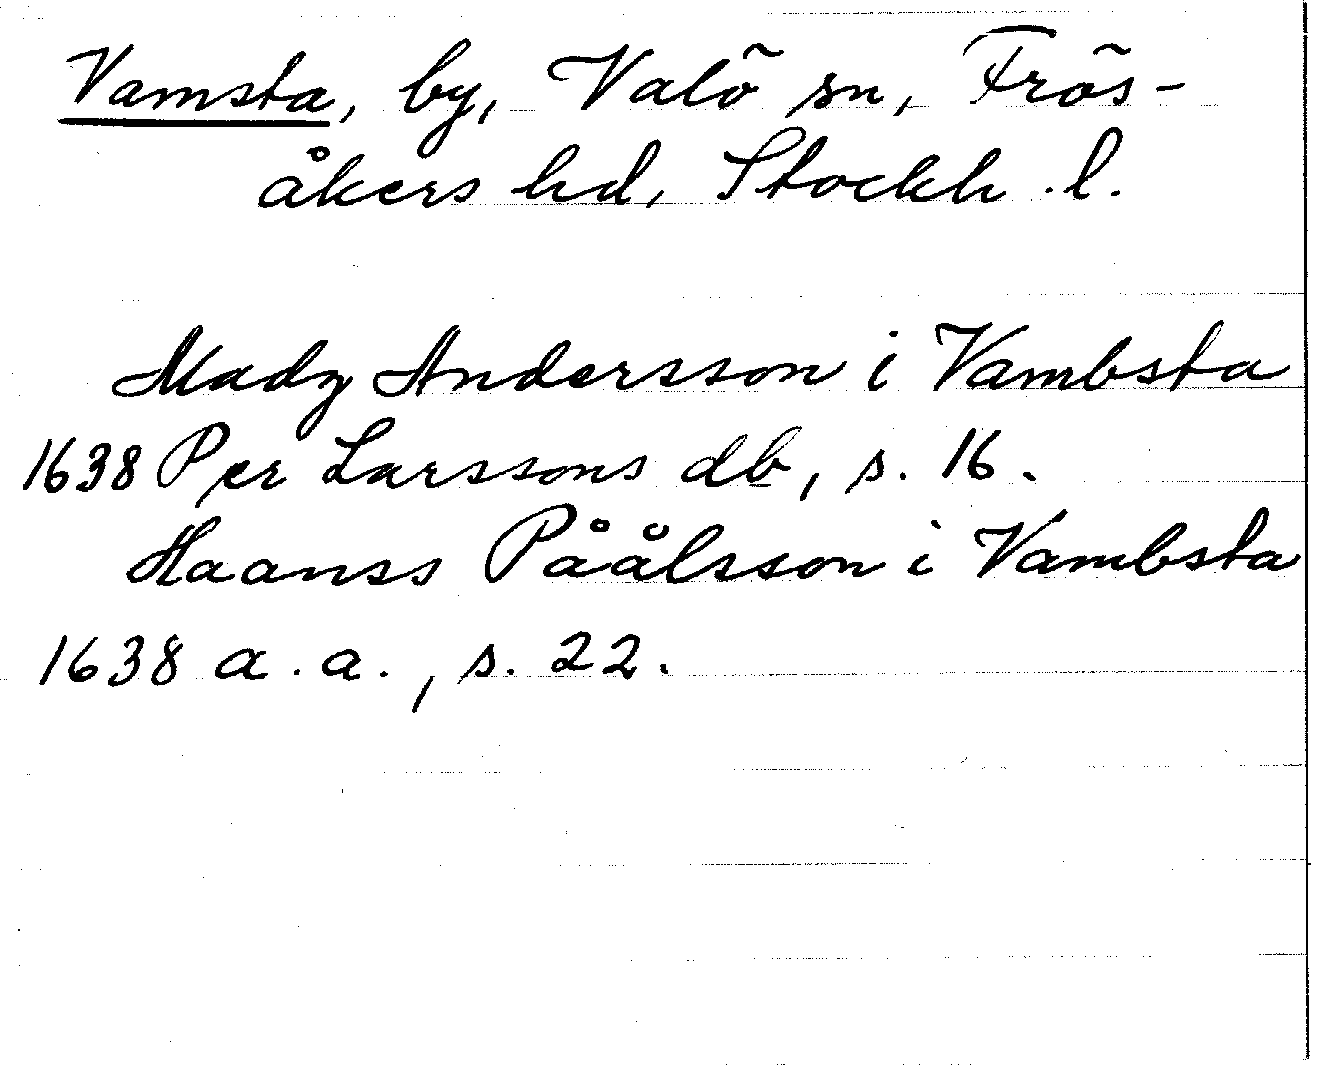 Vamsta, by, Valö sn, Frös-
åkers hd, Stockh. l.
Madz Andersson i Vambsta
1638 Per Larssons db, s. 16.
Haanss Påålsson i Vambsta
1638 a. a., s. 22.